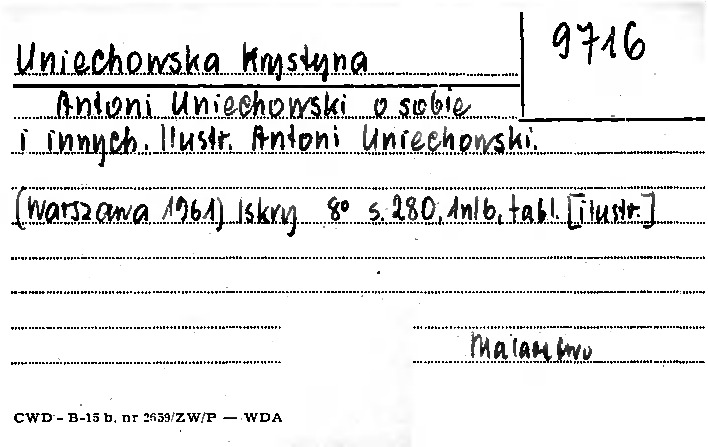 9716
Uniechowska Krystyna
Antoni Uniechowski o sobie
i innych. Ilustr. Antoni Uniechowski.
(Warszawa 1961) Iskry 8° s. 280, 1nlb, tabl. [ilustr.]
Malarstwo
CWD - B-15 b, nr 2659/ZW/P — WDA